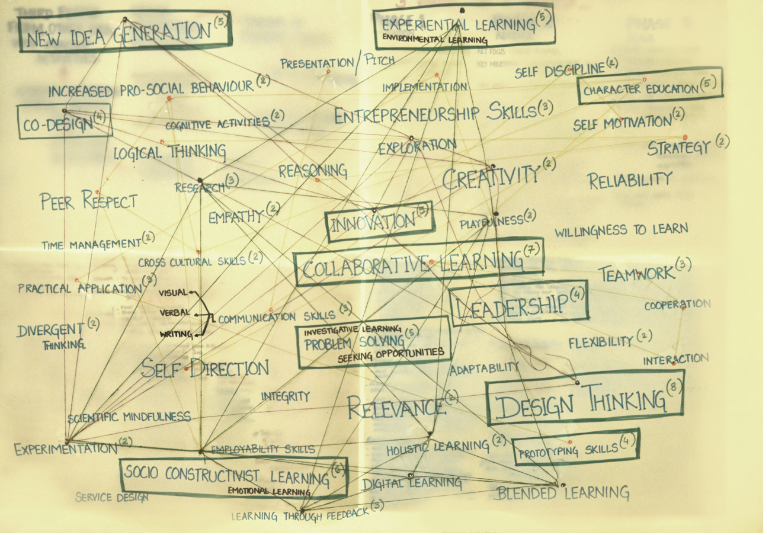 NEW IDEA GENERATION (5)
EXPERIENTIAL LEARNING (5)
ENVIRONMENTAL LEARNING
PRESENTATION/PITCH
SELF DISCIPLINE (2)
INCREASED PRO-SOCIAL BEHAVIOUR (2)
IMPLEMENTATION
CHARACTER EDUCATION (5)
CO-DESIGN (4)
COGNITIVE ACTIVITIES (2)
ENTREPRENEURSHIP SKILLS (3)
SELF MOTIVATION (2)
LOGICAL THINKING
EXPLORATION
STRATEGY (2)
REASONING
RESEARCH (3)
CREATIVITY (2)
RELIABILITY
PEER RESPECT
EMPATHY (2)
INNOVATION
PLAYFULNESS (2)
WILLINGNESS TO LEARN
TIME MANAGEMENT (2)
CROSS CULTURAL SKILLS (2)
COLLABORATIVE LEARNING (7)
TEAMWORK (3)
PRACTICAL APPLICATION
VISUAL
VERBAL
WRITING
COMMUNICATION SKILLS (3)
LEADERSHIP (4)
COOPERATION
DIVERGENT (2)
THINKING
INVESTIGATIVE LEARNING
PROBLEM SOLVING (5)
SEEKING OPPORTUNITIES
FLEXIBILITY (2)
INTERACTION
SELF DIRECTION
ADAPTABILITY
INTEGRITY
RELEVANCE
DESIGN THINKING (8)
SCIENTIFIC MINDFULNESS
EXPERIMENTATION (2)
EMPLOYABILITY SKILLS
HOLISTIC LEARNING (2)
PROTOTYPING SKILLS (4)
SOCIO CONSTRUCTIVIST LEARNING
EMOTIONAL LEARNING
DIGITAL LEARNING
BLENDED LEARNING
SERVICE DESIGN
LEARNING THROUGH FEEDBACK (3)